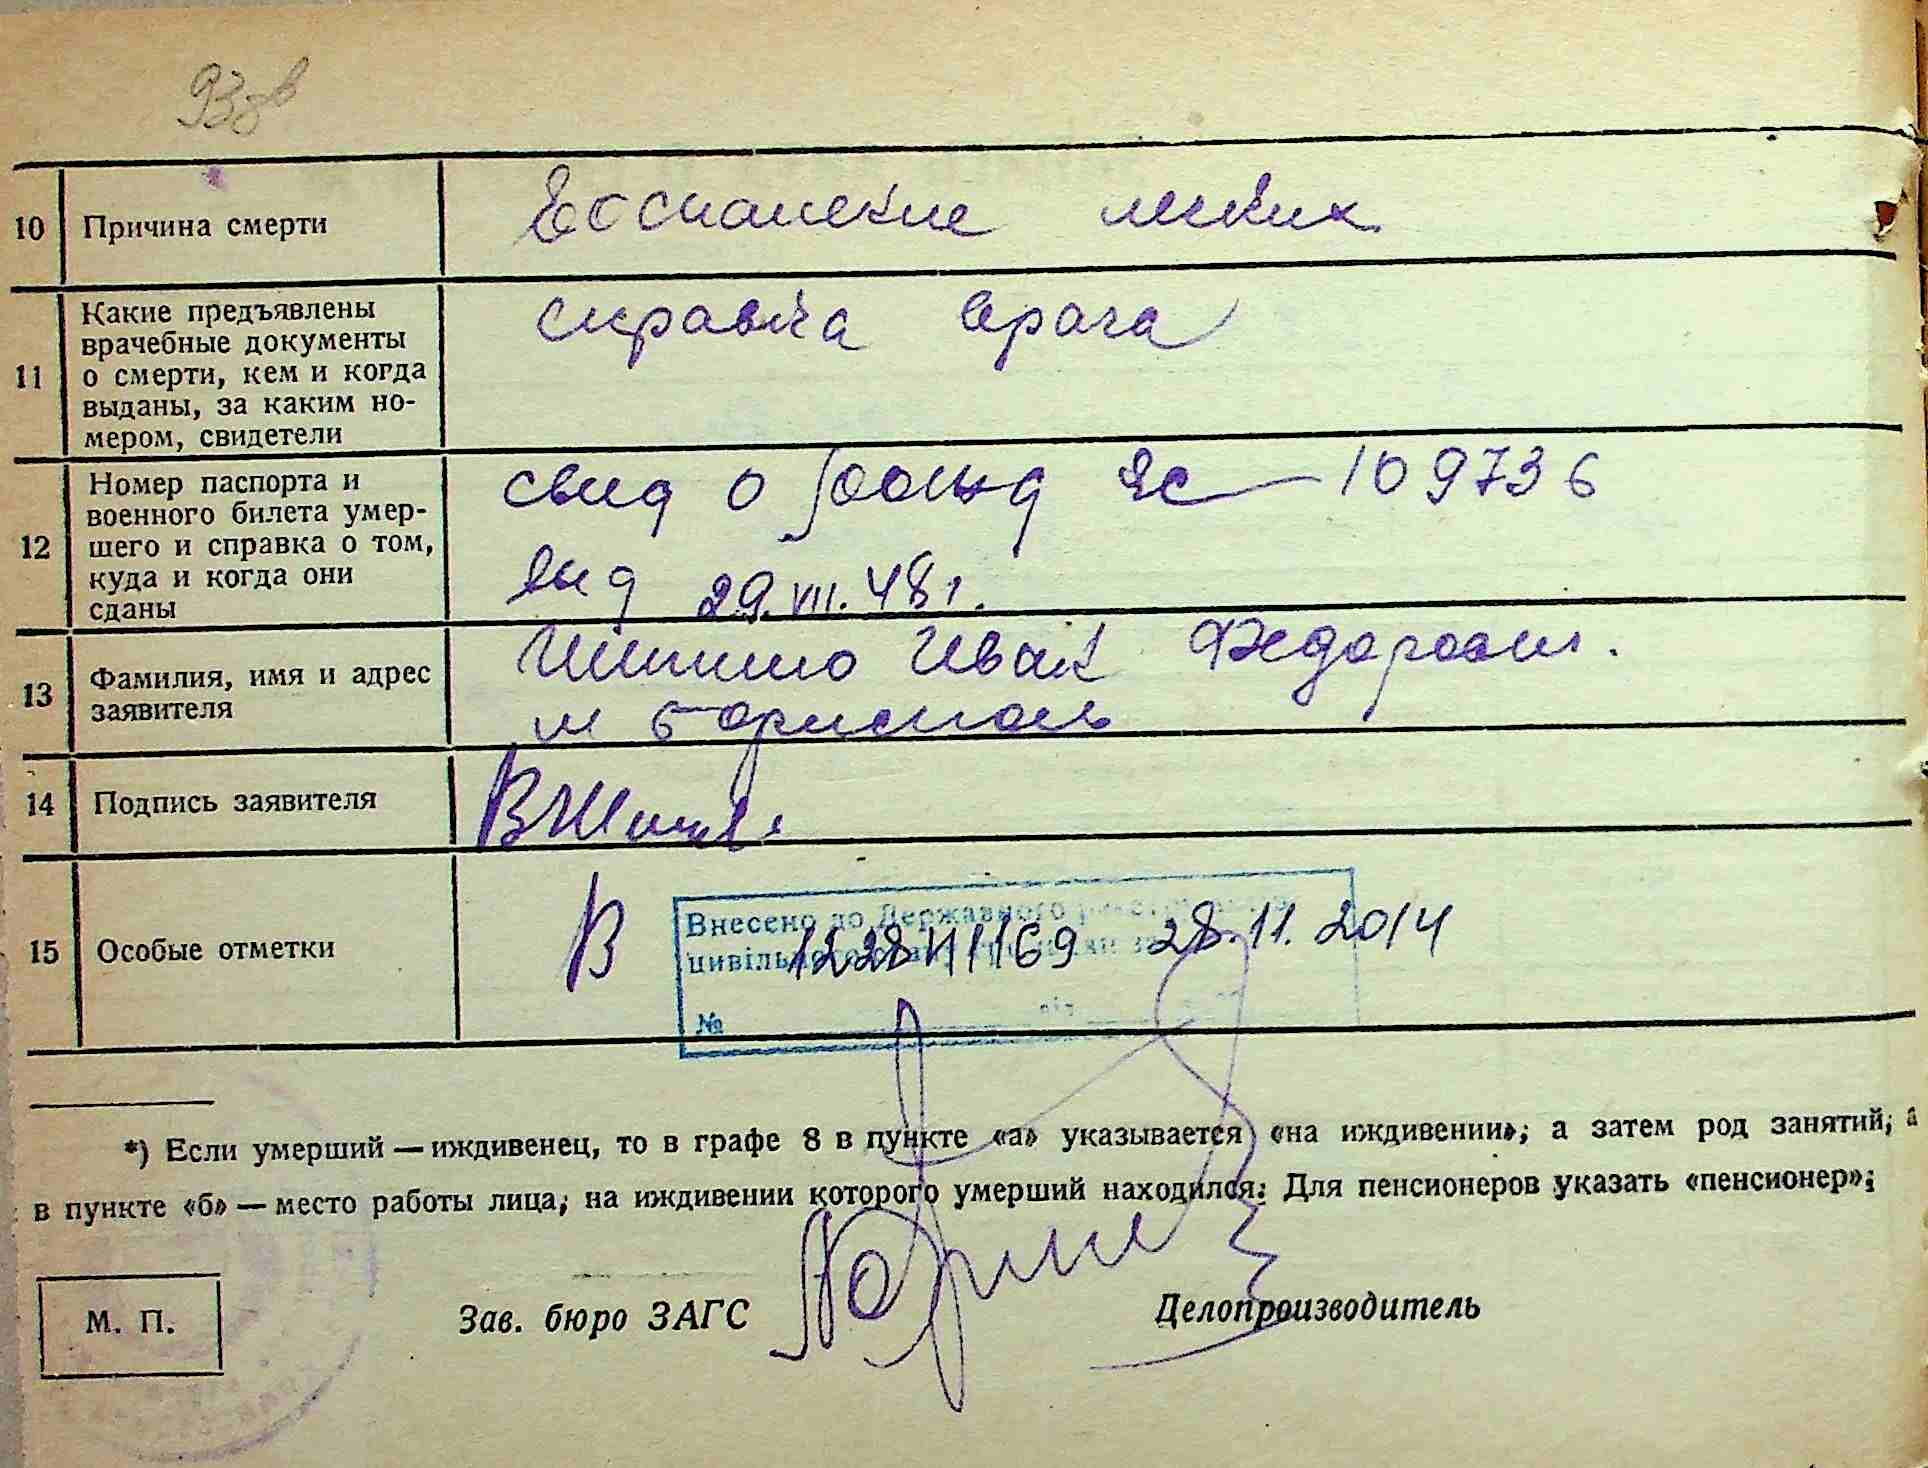 93 зв
10 Причина смерти Воспаление легких
11 Какие предъявлены врачебные документы о смерти, кем и когда выданы, за каким номером, свидетели справка врача
12 Номер паспорта и военного билета умершего и справка о том, куда и когда они сданы свид о рожд ЯС — 109736
выд 29.VII.48г.
13 Фамилия, имя и адрес заявителя Иван Федорович.
м Борисполь
14 Подпись заявителя
15 Особые отметки В
Внесено до Державного
цивільного 28.11.2014
№ від
*) Если умерший — иждивенец, то в графе 8 в пункте «а» указывается «на иждивении»; а затем род занятий; а
в пункте «б» — место работы лица; на иждивении которого умерший находился. Для пенсионеров указать «пенсионер»;
М. П. Зав. бюро ЗАГС Делопроизводитель